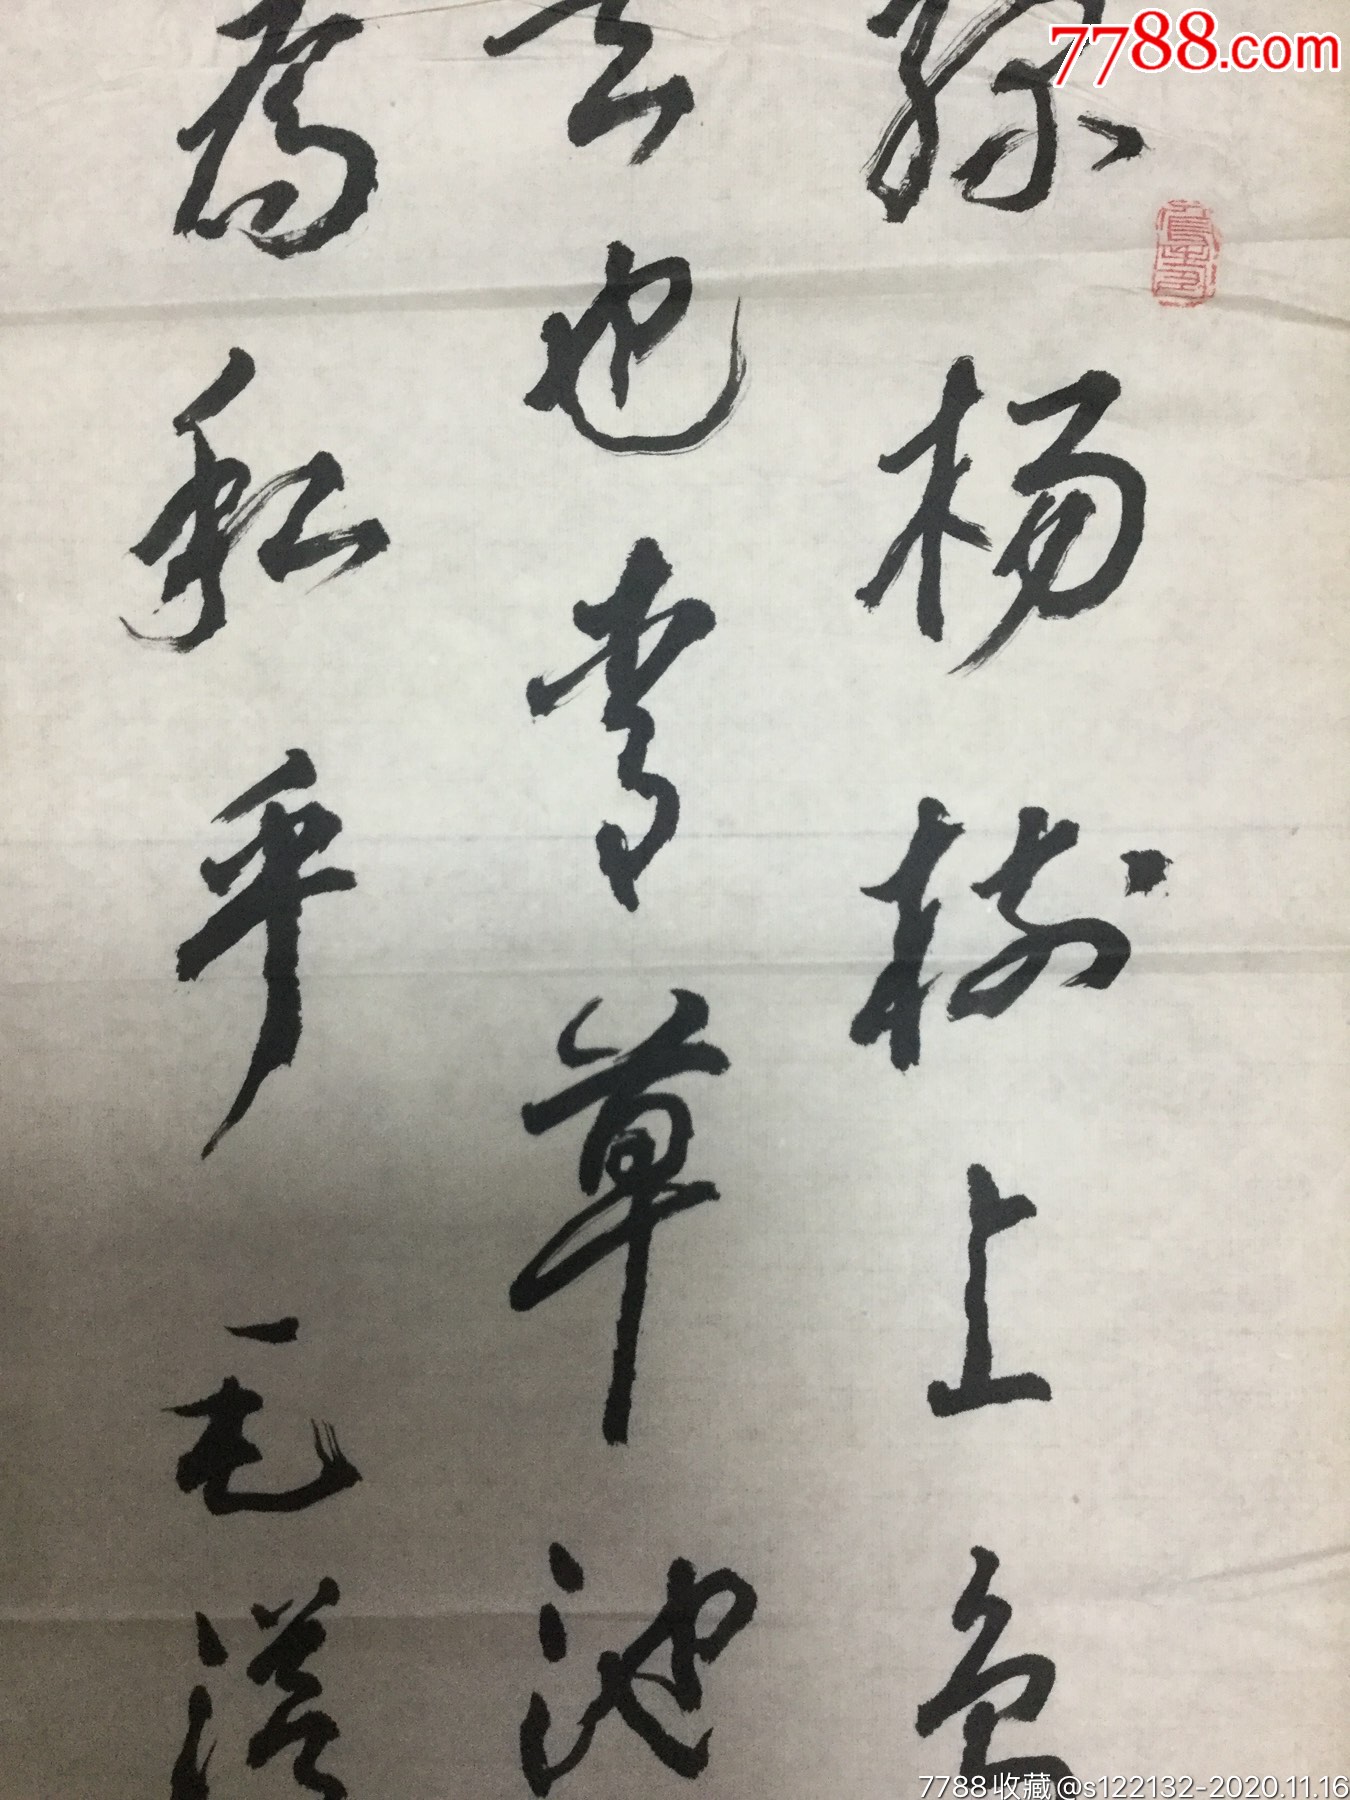 7788.com
绿杨树上鸟
去也青草池
為私乎 毛
7788收藏@s122132-2020.11.16